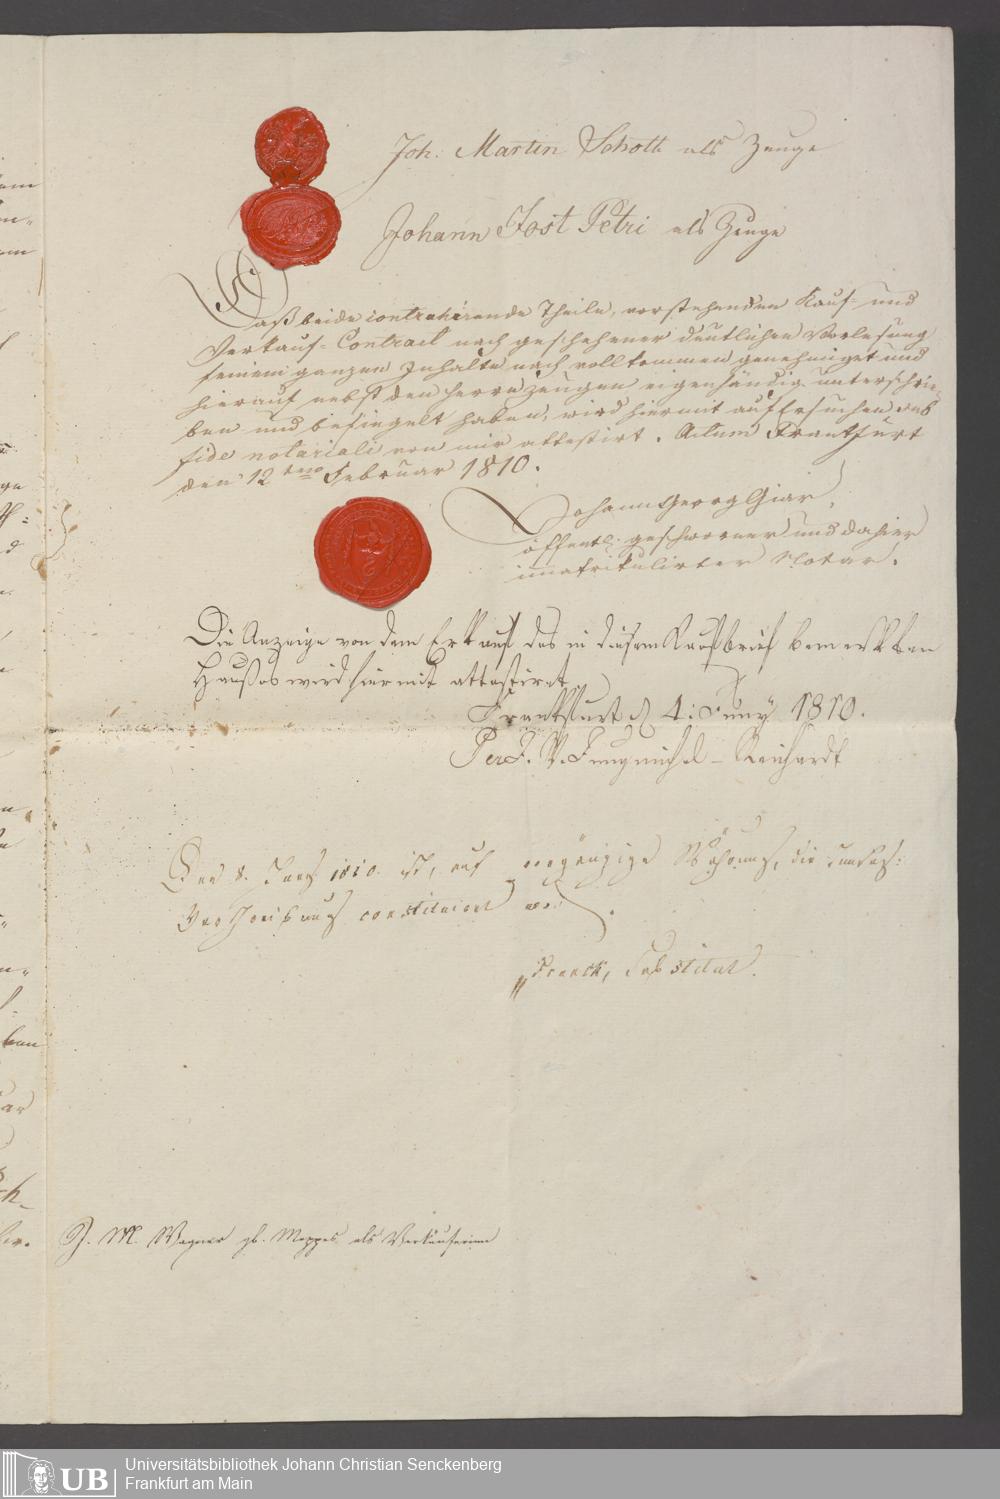 Joh: Martin Schott als Zeuge
Johann Jost Petri als Zeuge
Daß beide contrahirende Theile, vorstehenden Kauf- und
Verkauf-Contract nach geschehener deutlichen Vorlesung
seinem ganzen Inhalte nach vollkommen genehmiget und
hierauf nebst den Herrn Zeugen eigenhändig unterschrie-
ben und besiegelt haben, wird hiermit auf Ersuchen
fide notariali von mir attestirt. Actum Frankfurt
den 12ten Februar 1810.
Johann Georg Giar,
öffentl. geschworner und dahier
immatrikulirter Notar.
Die Anzeige von dem Erkauf des in diesem Kaufbrief bemerkten
Haußes wird hiermit attestiret
Frankfurt d 4: Juny 1810.
Reinhardt
Den 8. 1810. ist, auf Währung, die
constituiret
Franck, Substitut.
J. M. Wagner gb. Meppes als Verkäuferinn
Universitätsbibliothek Johann Christian Senckenberg
UB Frankfurt am Main